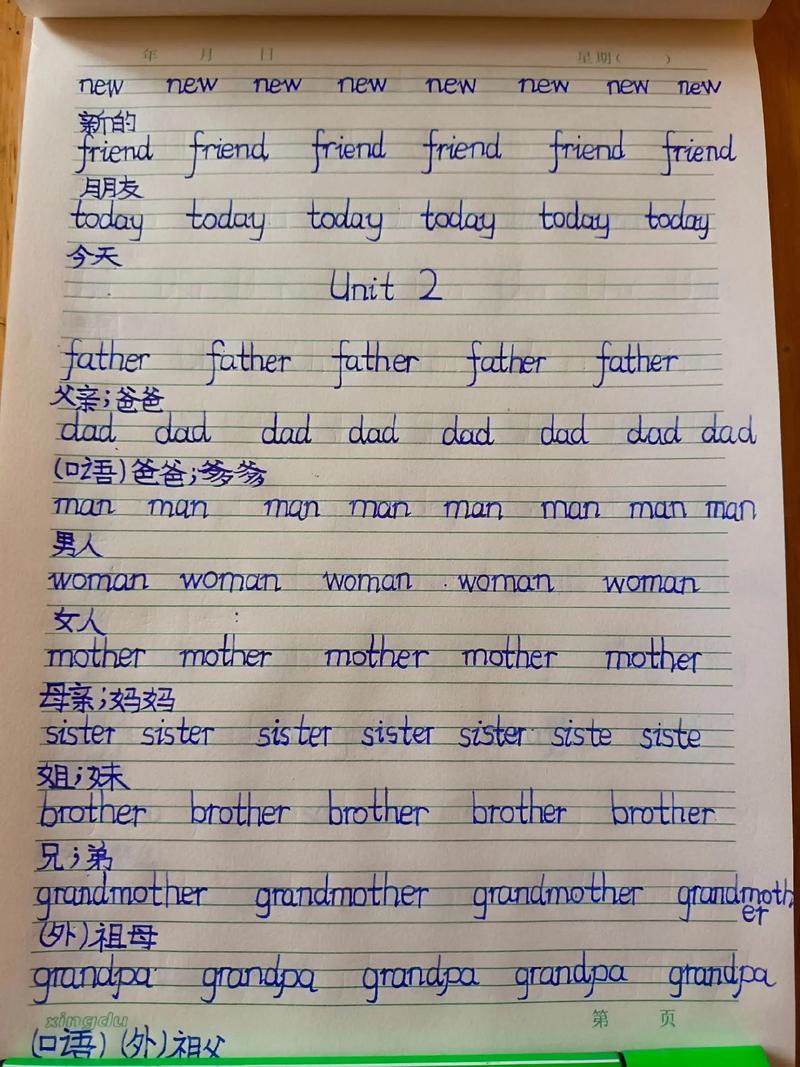 年 月 日 星期( )
new new new new new new new new
新的
friend friend friend friend friend friend
朋友
today today today today today today
今天
Unit 2
father father father father father
父亲;爸爸
dad dad dad dad dad dad dad dad
(口语)爸爸;爹爹
man man man man man man man man
男人
woman woman woman woman woman
女人
mother mother mother mother mother
母亲;妈妈
sister sister sister sister sister siste siste
姐;妹
brother brother brother brother brother
兄;弟
grandmother grandmother grandmother grandmoth
er
(外)祖母
grandpa grandpa grandpa grandpa grandpa
xingdu 第 页
(口语)(外)祖父